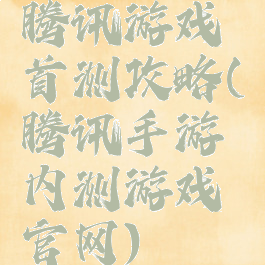 腾讯游戏
首测攻略(
腾讯手游
内测游戏
官网)